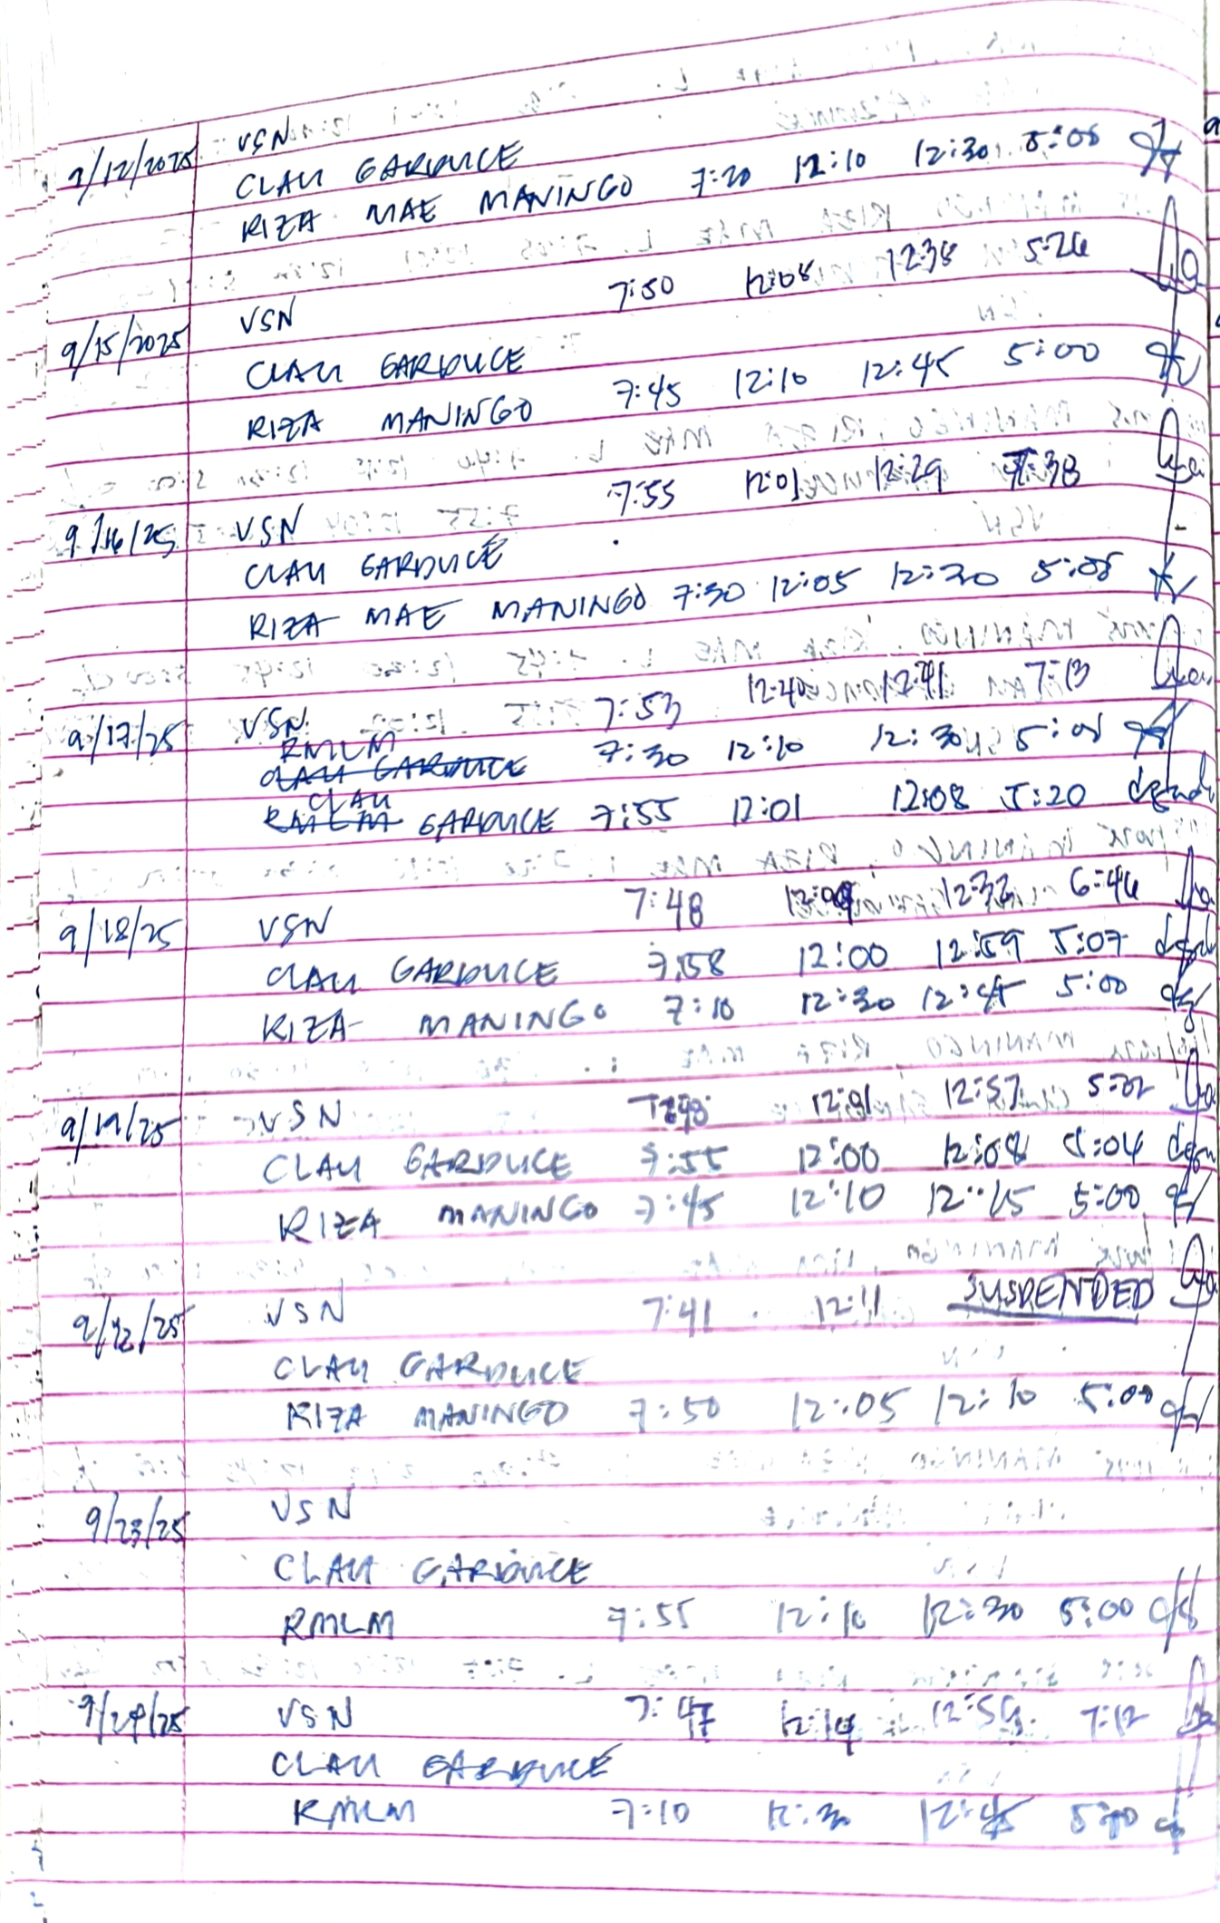 9/12/2025 VSN
CLAU GARDUCE
RIZA MAE MANINGO 7:20 12:10 12:30 5:08
9/15/2025 VSN 7:50 12:08 12:38 5:26
CLAU GARDUCE
RIZA MANINGO 7:45 12:10 12:45 5:00
9/16/25 VSN 7:55 12:01 12:29 7:38
CLAU GARDUCE
RIZA MAE MANINGO 7:30 12:05 12:30 5:08
9/17/25 VSN 7:53 12:40 12:41 7:13
RMLM
CLAU GARDUCE 7:30 12:10 12:30 5:08
CLAU
RMLM GARDUCE 7:55 12:01 12:08 5:20
9/18/25 VSN 7:48 12:33 6:46
CLAU GARDUCE 7:58 12:00 12:59 5:07
RIZA MANINGO 7:10 12:30 12:45 5:00
9/19/25 VSN 12:57 5:02
CLAU GARDUCE 7:55 12:00 12:08 5:04
RIZA MANINGO 7:45 12:10 12:15 5:00
9/22/25 VSN 7:41 12:11 SUSPENDED
CLAU GARDUCE
RIZA MANINGO 7:50 12:05 12:10 5:00
9/23/25 VSN
CLAU GARDUCE
RMLM 7:55 12:10 12:30 5:00
9/24/25 VSN 7:47 12:14 12:59 7:12
CLAU GARDUCE
RMLM 7:10 12:30 12:45 5:00